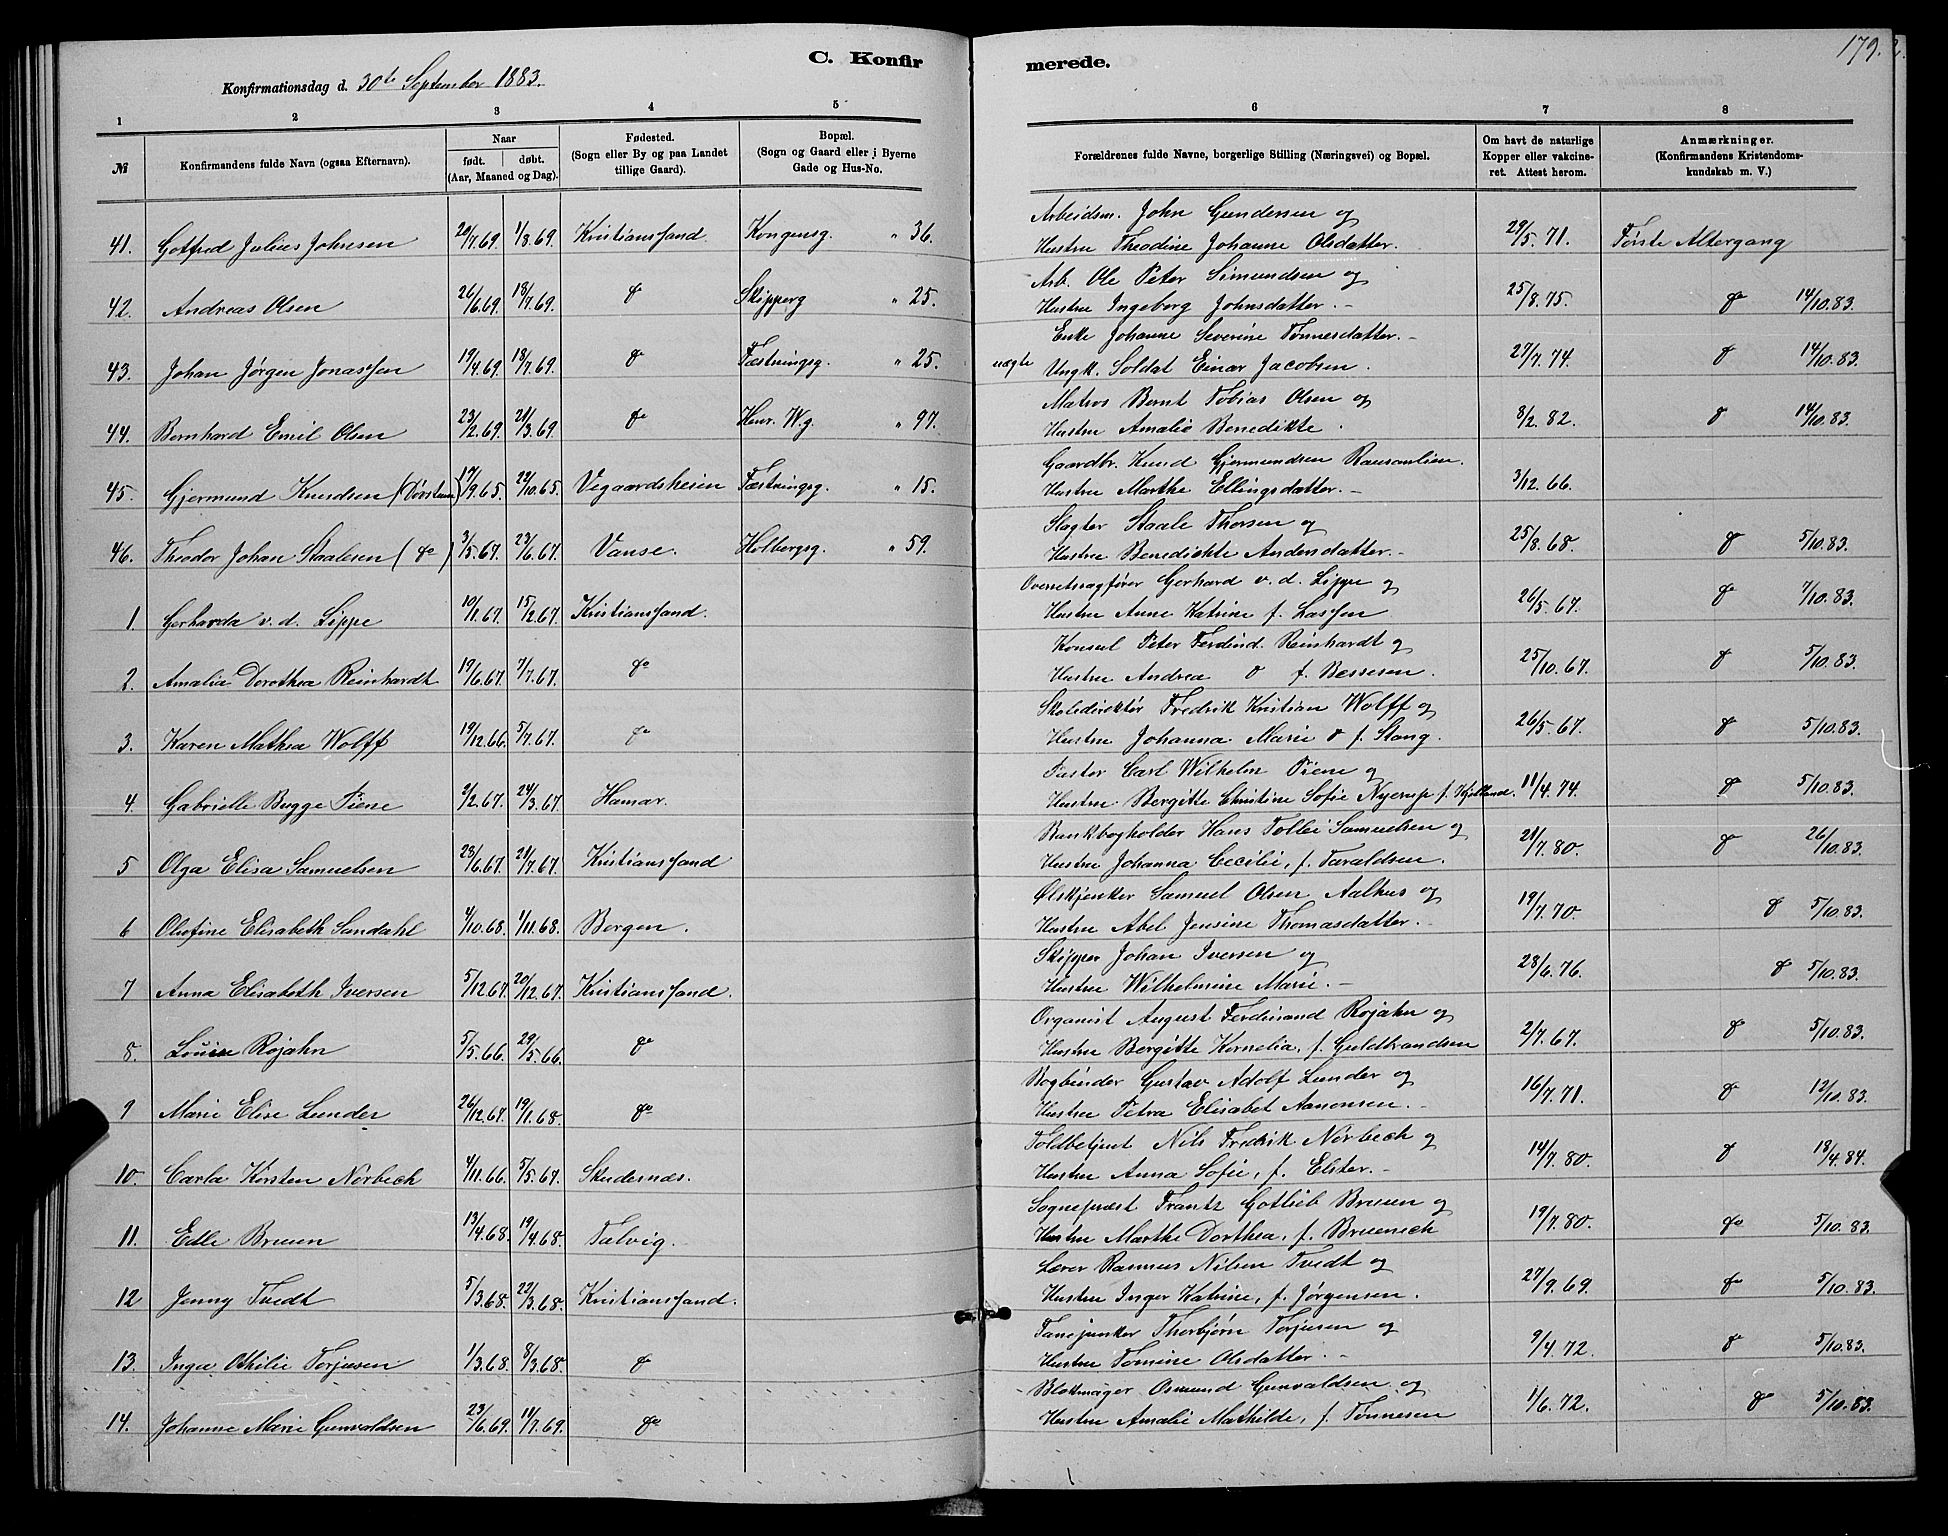 C. Konfir
merede.
179.
Konfirmationsdag d. 30te September 1883.
1 2 3 4 5 6 7 8
№
Konfirmandens fulde Navn (ogsaa Efternavn).
Naar
født. døbt.
(Aar, Maaned og Dag).
Fødested.
(Sogn eller By og paa Landet
tillige Gaard).
Bopæl.
(Sogn og Gaard eller i Byerne
Gade og Hus-No.
Forældrenes fulde Navne, borgerlige Stilling (Næringsvei) og Bopæl.
Om havt de naturlige
Kopper eller vakcine-
ret. Attest herom.
Anmærkninger.
(Konfirmandens Kristendoms-
kundskab m. V.)
Arbeidsm. John Gundersen og
41. Gotfred Julius Johnsen 20/7.69. 1/8.69. Kristianssand. Kongensg. " 36. Hustru Theodine Johanne Olsdatter. 29/5.71. Første Altergang
Arb. Ole Peter Simundsen og
42. Andreas Olsen 26/6.69. 18/7.69. do Skipperg " 25. Hustru Ingeborg Johnsdatter. 25/8.75. do 14/10.83.
Enke Johanne Severine Tønnesdatter.
43. Johan Jørgen Jonassen 19/4.69. 18/7.69. do Fæstningsg. " 25. uægte Ungk. Soldat Einar Jacobsen. 27/7.74. do 14/10.83.
Matros Bernt Tobias Olsen og
44. Bernhard Emil Olsen 23/2.69. 21/3.69. do Henr. W.g. " 97. Hustru Amalie Benedikte. 8/2.82. do 14/10.83.
Gaardbr. Knud Gjermundsen
45. Gjermund Knudsen (Døvstum) 17/9.65. 22/10.65. Vegaardsheien Fæstningsg. " 15. Hustru Marthe Ellingsdatter. 3/12.66.
Slagter Staale Thorsen og
46. Theodor Johan Staalesen (do) 3/5.67. 23/6.67. Vanse. Holbergsg. " 59. Hustru Benedickte Andersdatter. 25/8.68. do 5/10.83.
Overretssagfører Gerhard v. d. Lippe og
1. Gerharda v. d. Lippe 10/1.67. 15/2.67. Kristianssand. Hustru Anne Katrine f. Lassen 26/5.67. do 7/10.83.
Konsul Peter Ferdind. Reinhardt og
2. Amalia Dorothea Reinhardt 19/6.67. 7/7.67. do Hustru Andrea do f. Bessesen. 25/10.67. do 5/10.83.
Skoledirektør Fredrik Kristian Wolff og
3. Karen Mathea Wolff 19/12.66. 5/7.67. do Hustru Johanna Marie do f. Stang. 26/5.67. do 5/10.83.
Pastor Carl Wilhelm Piene og
4. Gabrielle Bugge Piene 2/2.67. 24/3.67. Hamar. Hustru Bergitte Christine Sofie Nyerup f. Kjelland. 11/4.74. do 5/10.83.
Bankbogholder Hans Tollei Samuelsen og
5 Olga Elisa Samuelsen 23/6.67. 21/7.67. Kristianssand Hustru Johanna Cecilie, f. Taraldsen. 21/7.80. do 26/10.83.
Ølskjenker Samuel Olsen Aalhus og
6 Olufine Elisabeth Sundahl 4/10.68. 1/11.68. Bergen. Hustru Abel Jensine Thomasdatter. 19/7.70. do 5/10.83.
Skipper Johan Iversen og
7 Anna Elisabeth Iversen 5/12.67. 20/12.67. Kristianssand. Hustru Wilhelmine Marie. 28/6.76. do 5/10.83.
Organist August Ferdinand Rojahn og
8. Louise Rojahn 5/5.66. 29/5.66. do Hustru Bergitte Kornelia, f. Guldbrandsen 2/7.67. do 5/10.83.
Bogbinder Gustav Adolf Lunder og
9 Marie Elise Lunder 26/12.67. 19/1.68. do Hustru Petra Elisabet Aanonsen. 16/7.71. do 12/10.83.
Toldbetjent Nils Fredrik Norbech og
10. Carla Kirsten Norbech 4/11.66. 5/5.67. Skudernæs. Hustru Anna Sofie, f. Elster. 14/7.80. do 13/4.84.
Sogneprest Frantz Gotlieb Bruun og
11. Edle Bruun 13/4.68. 19/4.68. Talvig. Hustru Marthe Dorthea, f. Bruenech 19/7.80. do 5/10.83.
Lærer Rasmus Nilsen Tvedt og
12 Jenny Tvedt 5/3.68. 22/3.68. Kristianssand. Hustru Inger Katrine, f. Jørgensen. 27/9.69. do 5/10.83.
Fanejunker Thorbjørn Torjusen og
13. Inga Othilie Torjusen 1/3.68. 8/3.68. do Hustru Tomine Olsdatter. 9/4.72. do 5/10.83.
Blokmager Osmund Gunvaldsen og
14. Johanne Marie Gunvaldsen 23/6.69. 11/7.69. do Hustru Amalie Mathilde, f. Tønnesen 1/6.72. do 5/10.83.